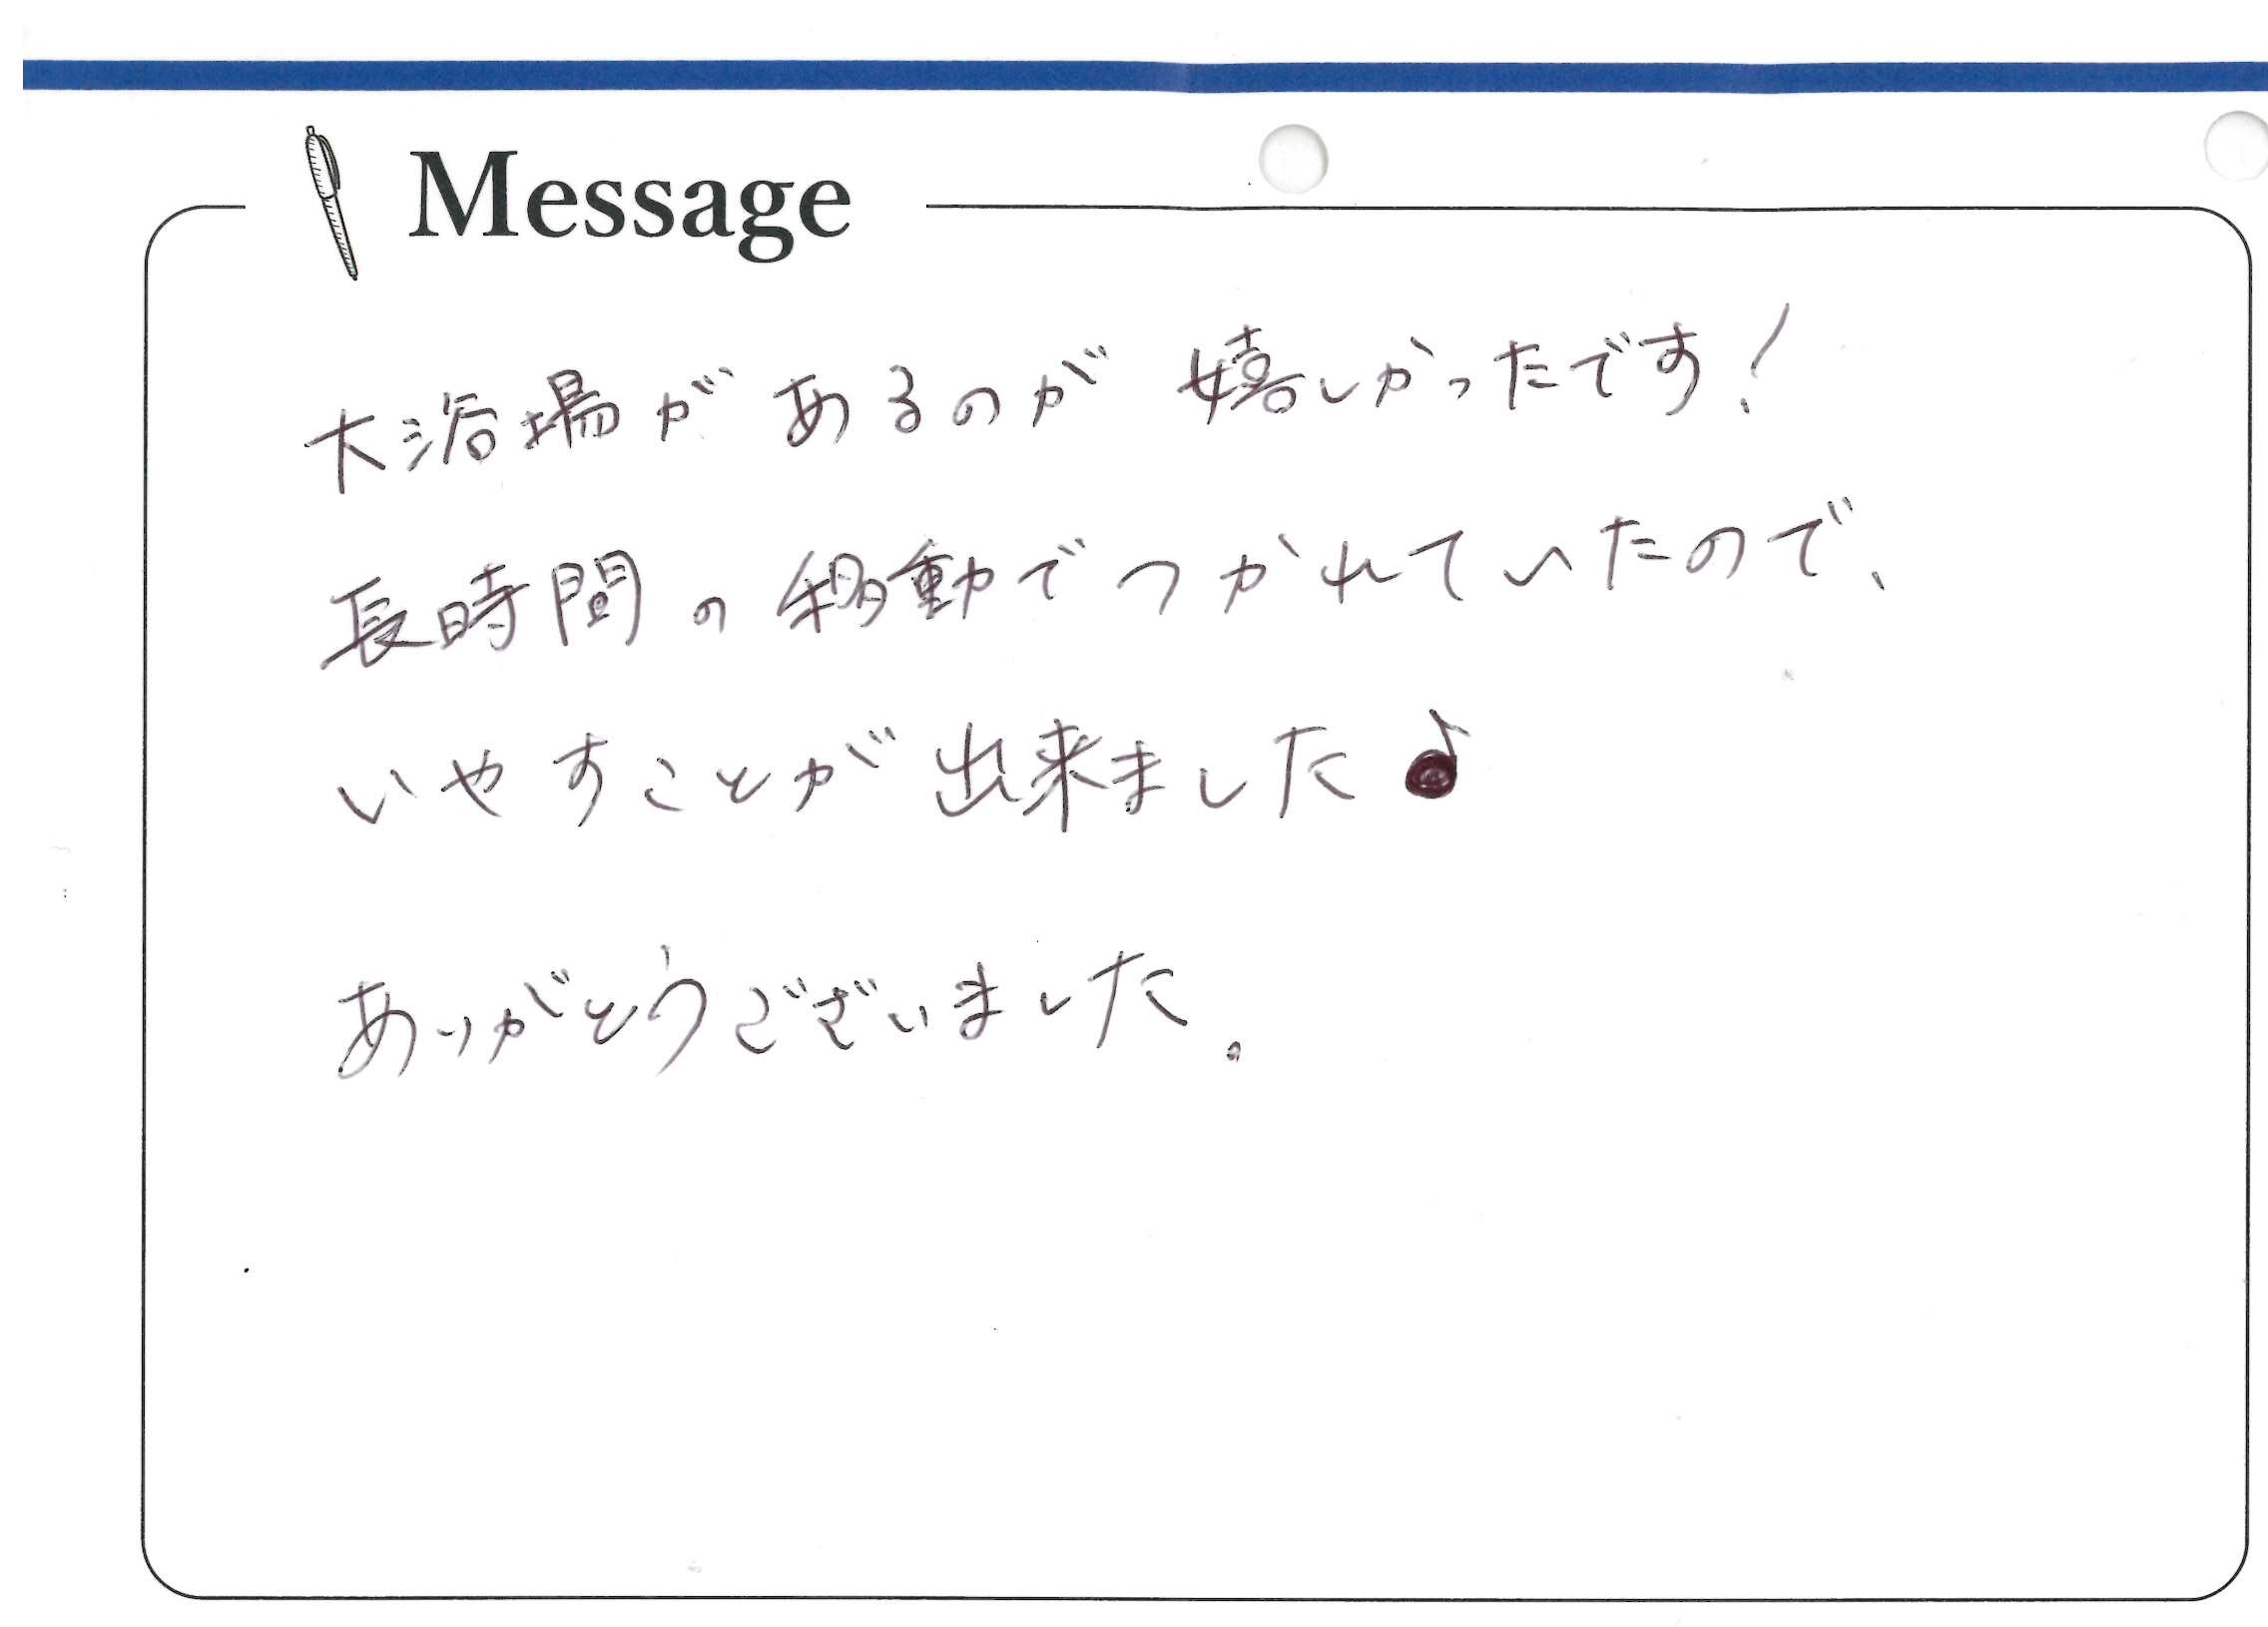 Message
大浴場があるのが嬉しかったです!
長時間の移動でつかれていたので、
いやすことが出来ました♪
ありがとうございました。